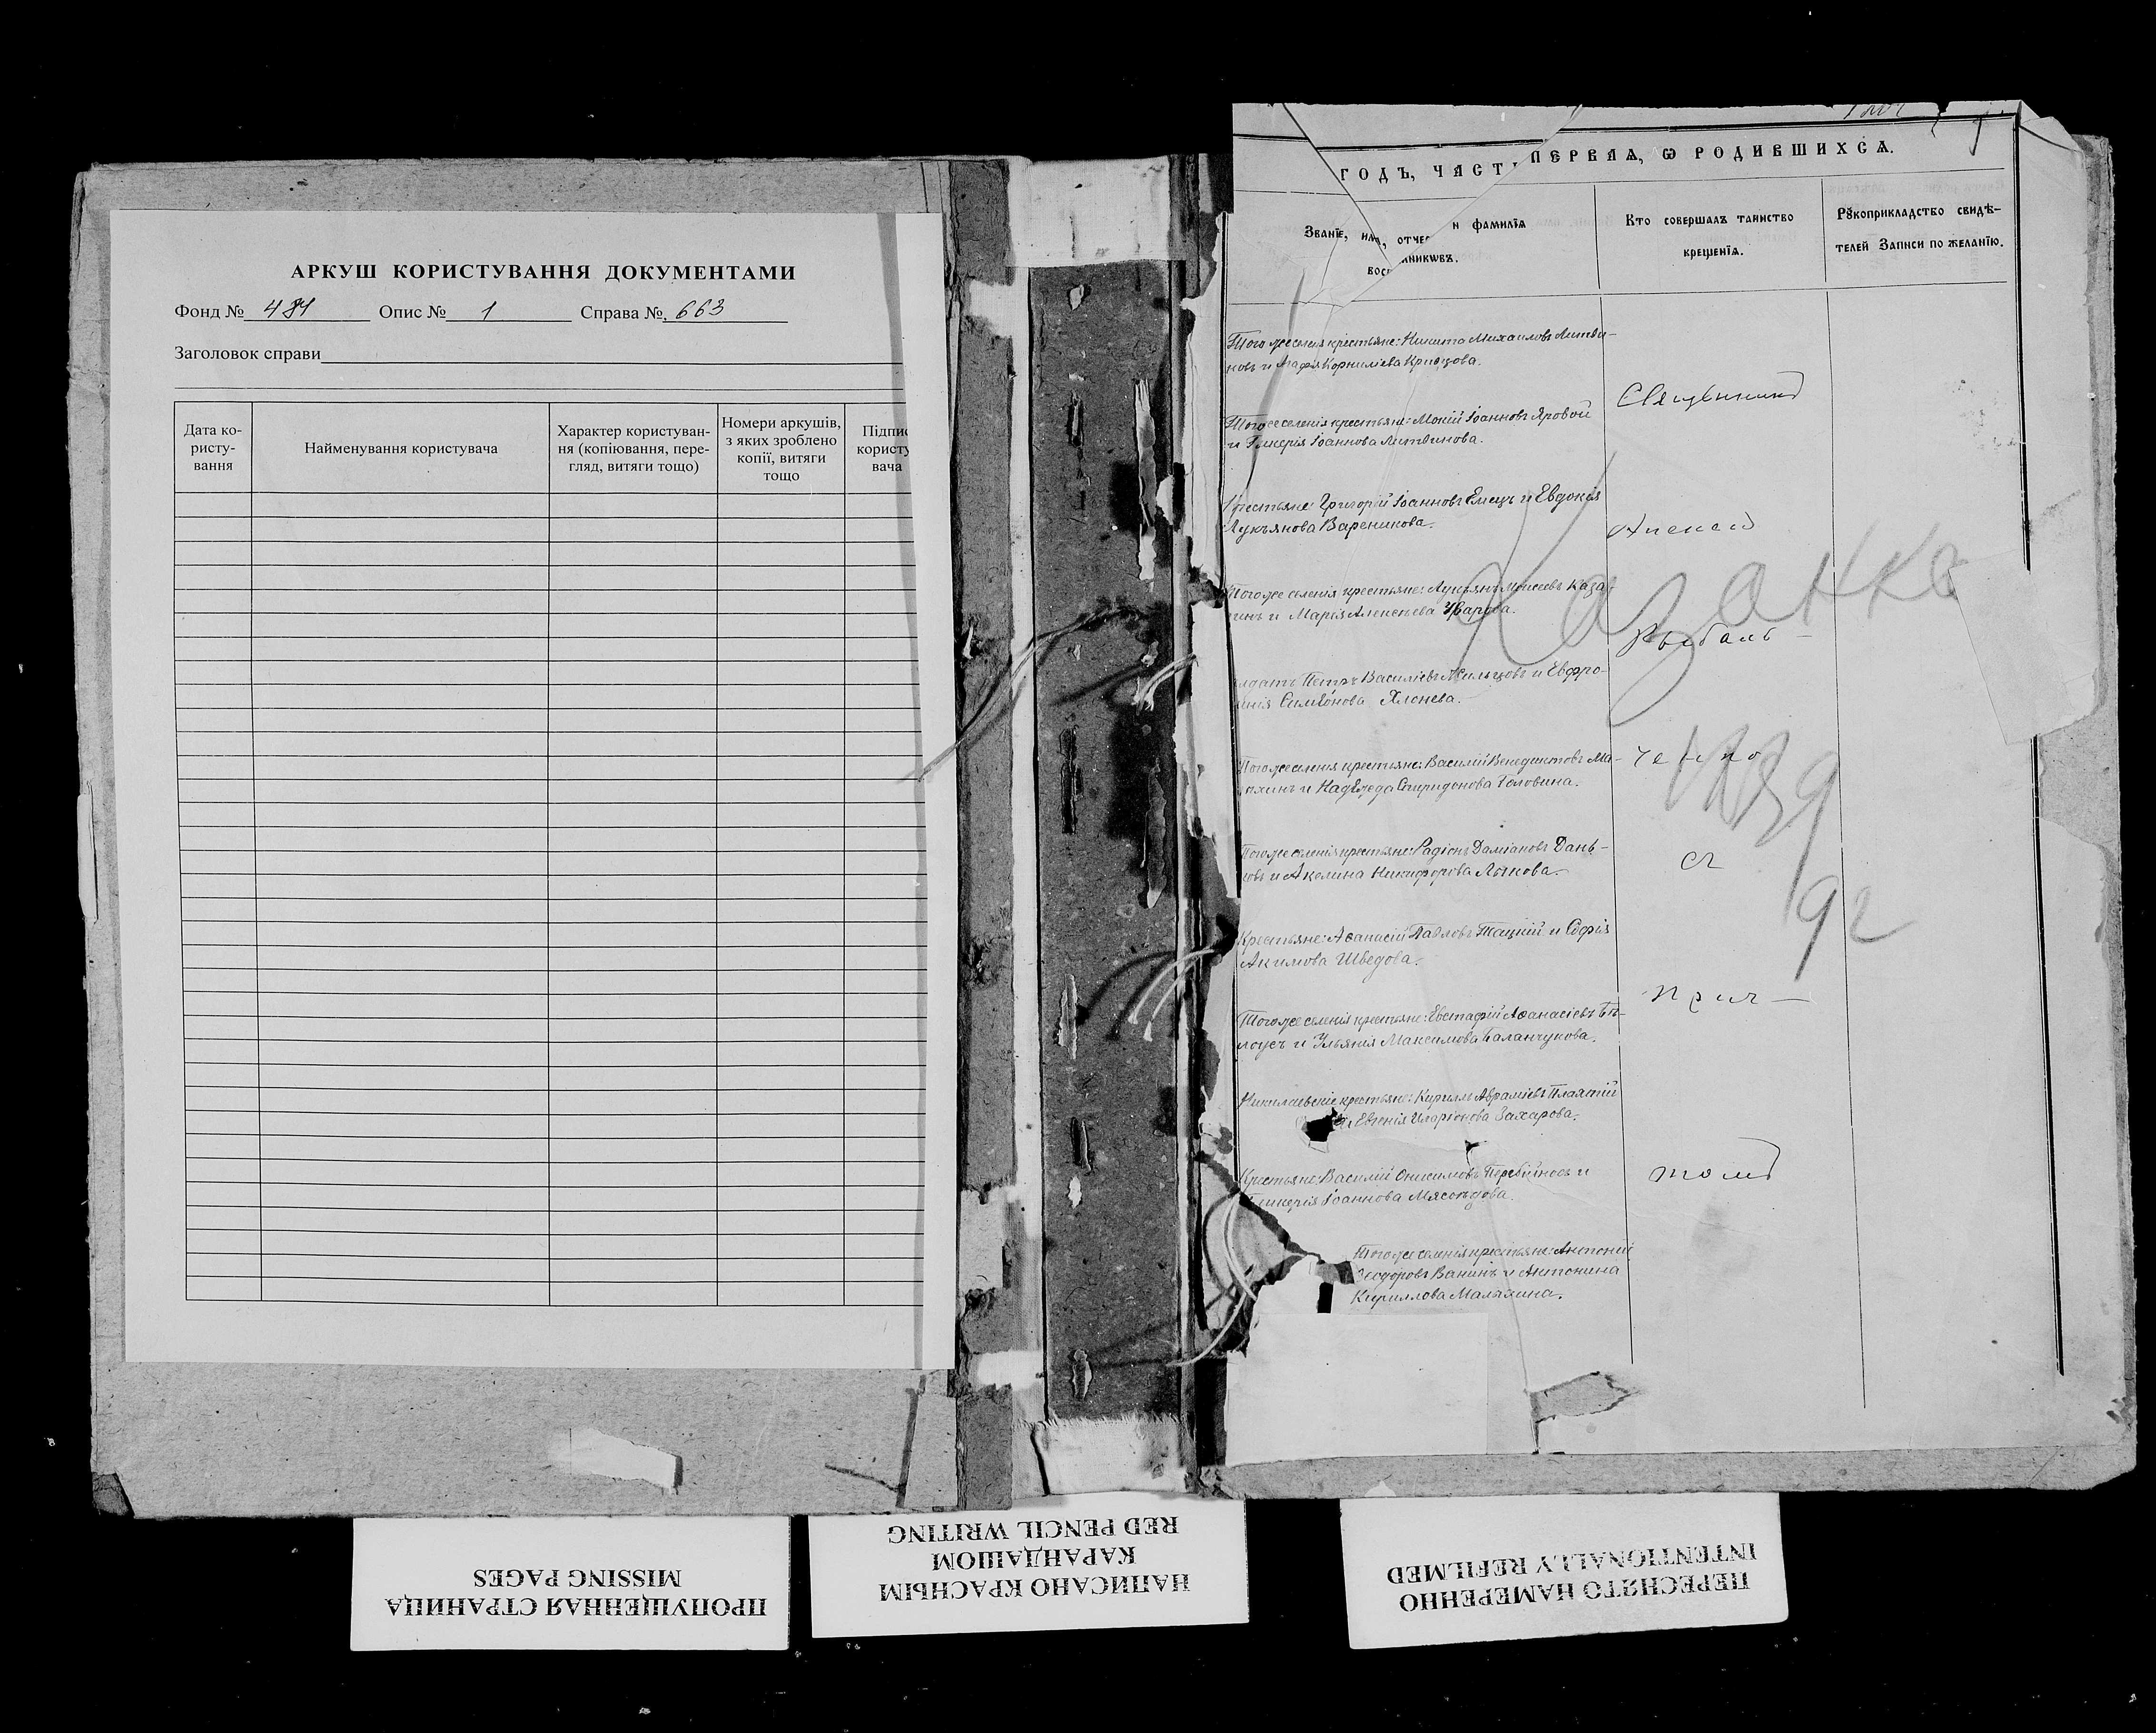 АРКУШ КОРИСТУВАННЯ ДОКУМЕНТАМИ
Фонд № Опис № 1 Справа № 663
Заголовок справи
Дата ко-
ристу-
вання
Найменування користувача
Характер користуван-
ня (копіювання, пере-
гляд, витяги тощо)
Номери аркушів,
з яких зроблено
копії, витяги
тощо
Підпис
користу
вача
ГОДЪ, ЧАСТ ПЕРВАѦ, Ѡ РОДИВШИХСѦ.
Званїе, имѧ, отчес и фамилїя
вос никѡвъ.
Кто совершалъ таинство
крещенїѧ.
Рꙋкоприкладство свидѣ-
телей Записи по желанїю.
Того же селенія крестьяне: Никита Михаиловъ Литви-
новъ и Агафія Корниліева Кривцова.
Того же селенія крестьяне: Мокій Іоанновъ Яровой
и Гликерія Іоаннова Литвинова.
Крестьяне: Григорій Іоанновъ Емецъ и Евдокія
Лукьянова Вареникова.
Того же селенія крестьяне: Лукіянъ Моисеевъ Каза-
и Марія Алексѣева Уварова.
Петръ Василіевъ Жильцовъ и Евфро-
Симеонова
Того же селенія крестьяне: Василій Венедиктовъ Ма-
и Надежда Спиридонова Головина.
Того же селенія крестьяне: Радіонъ Даміановъ Дань-
и Акелина Никифорова Лыкова.
Крестьяне: Аѳанасій Павловъ Тацкій и Софія
Акимова Шведова.
Того же селенія крестьяне: Евстафій Аѳанасіевъ Бѣ-
лоусъ и Ульянія Максимова Баланчукова.
Николаевскіе крестьяне: Кириллъ Авраміевъ
Евгенія Иларіонова Захарова.
Крестьяне: Василій Онисимовъ Перебійносъ и
Гликерія Іоаннова Мясоѣдова.
Того же селенія крестьяне: Антоній
Ѳеодоровъ Ванинъ и Антонина
Кириллова Малахина.
Священникъ
Алексѣй
Рыбаль-
ченко
съ
прич-
томъ
Казанка
92
ПРОПУЩЕННАЯ СТРАНИЦА
MISSING PAGES
НАПИСАНО КРАСНЫМ
КАРАНДАШОМ
RED PENCIL WRITING
ПЕРЕСНЯТО НАМЕРЕННО
INTENTIONALLY REFILMED